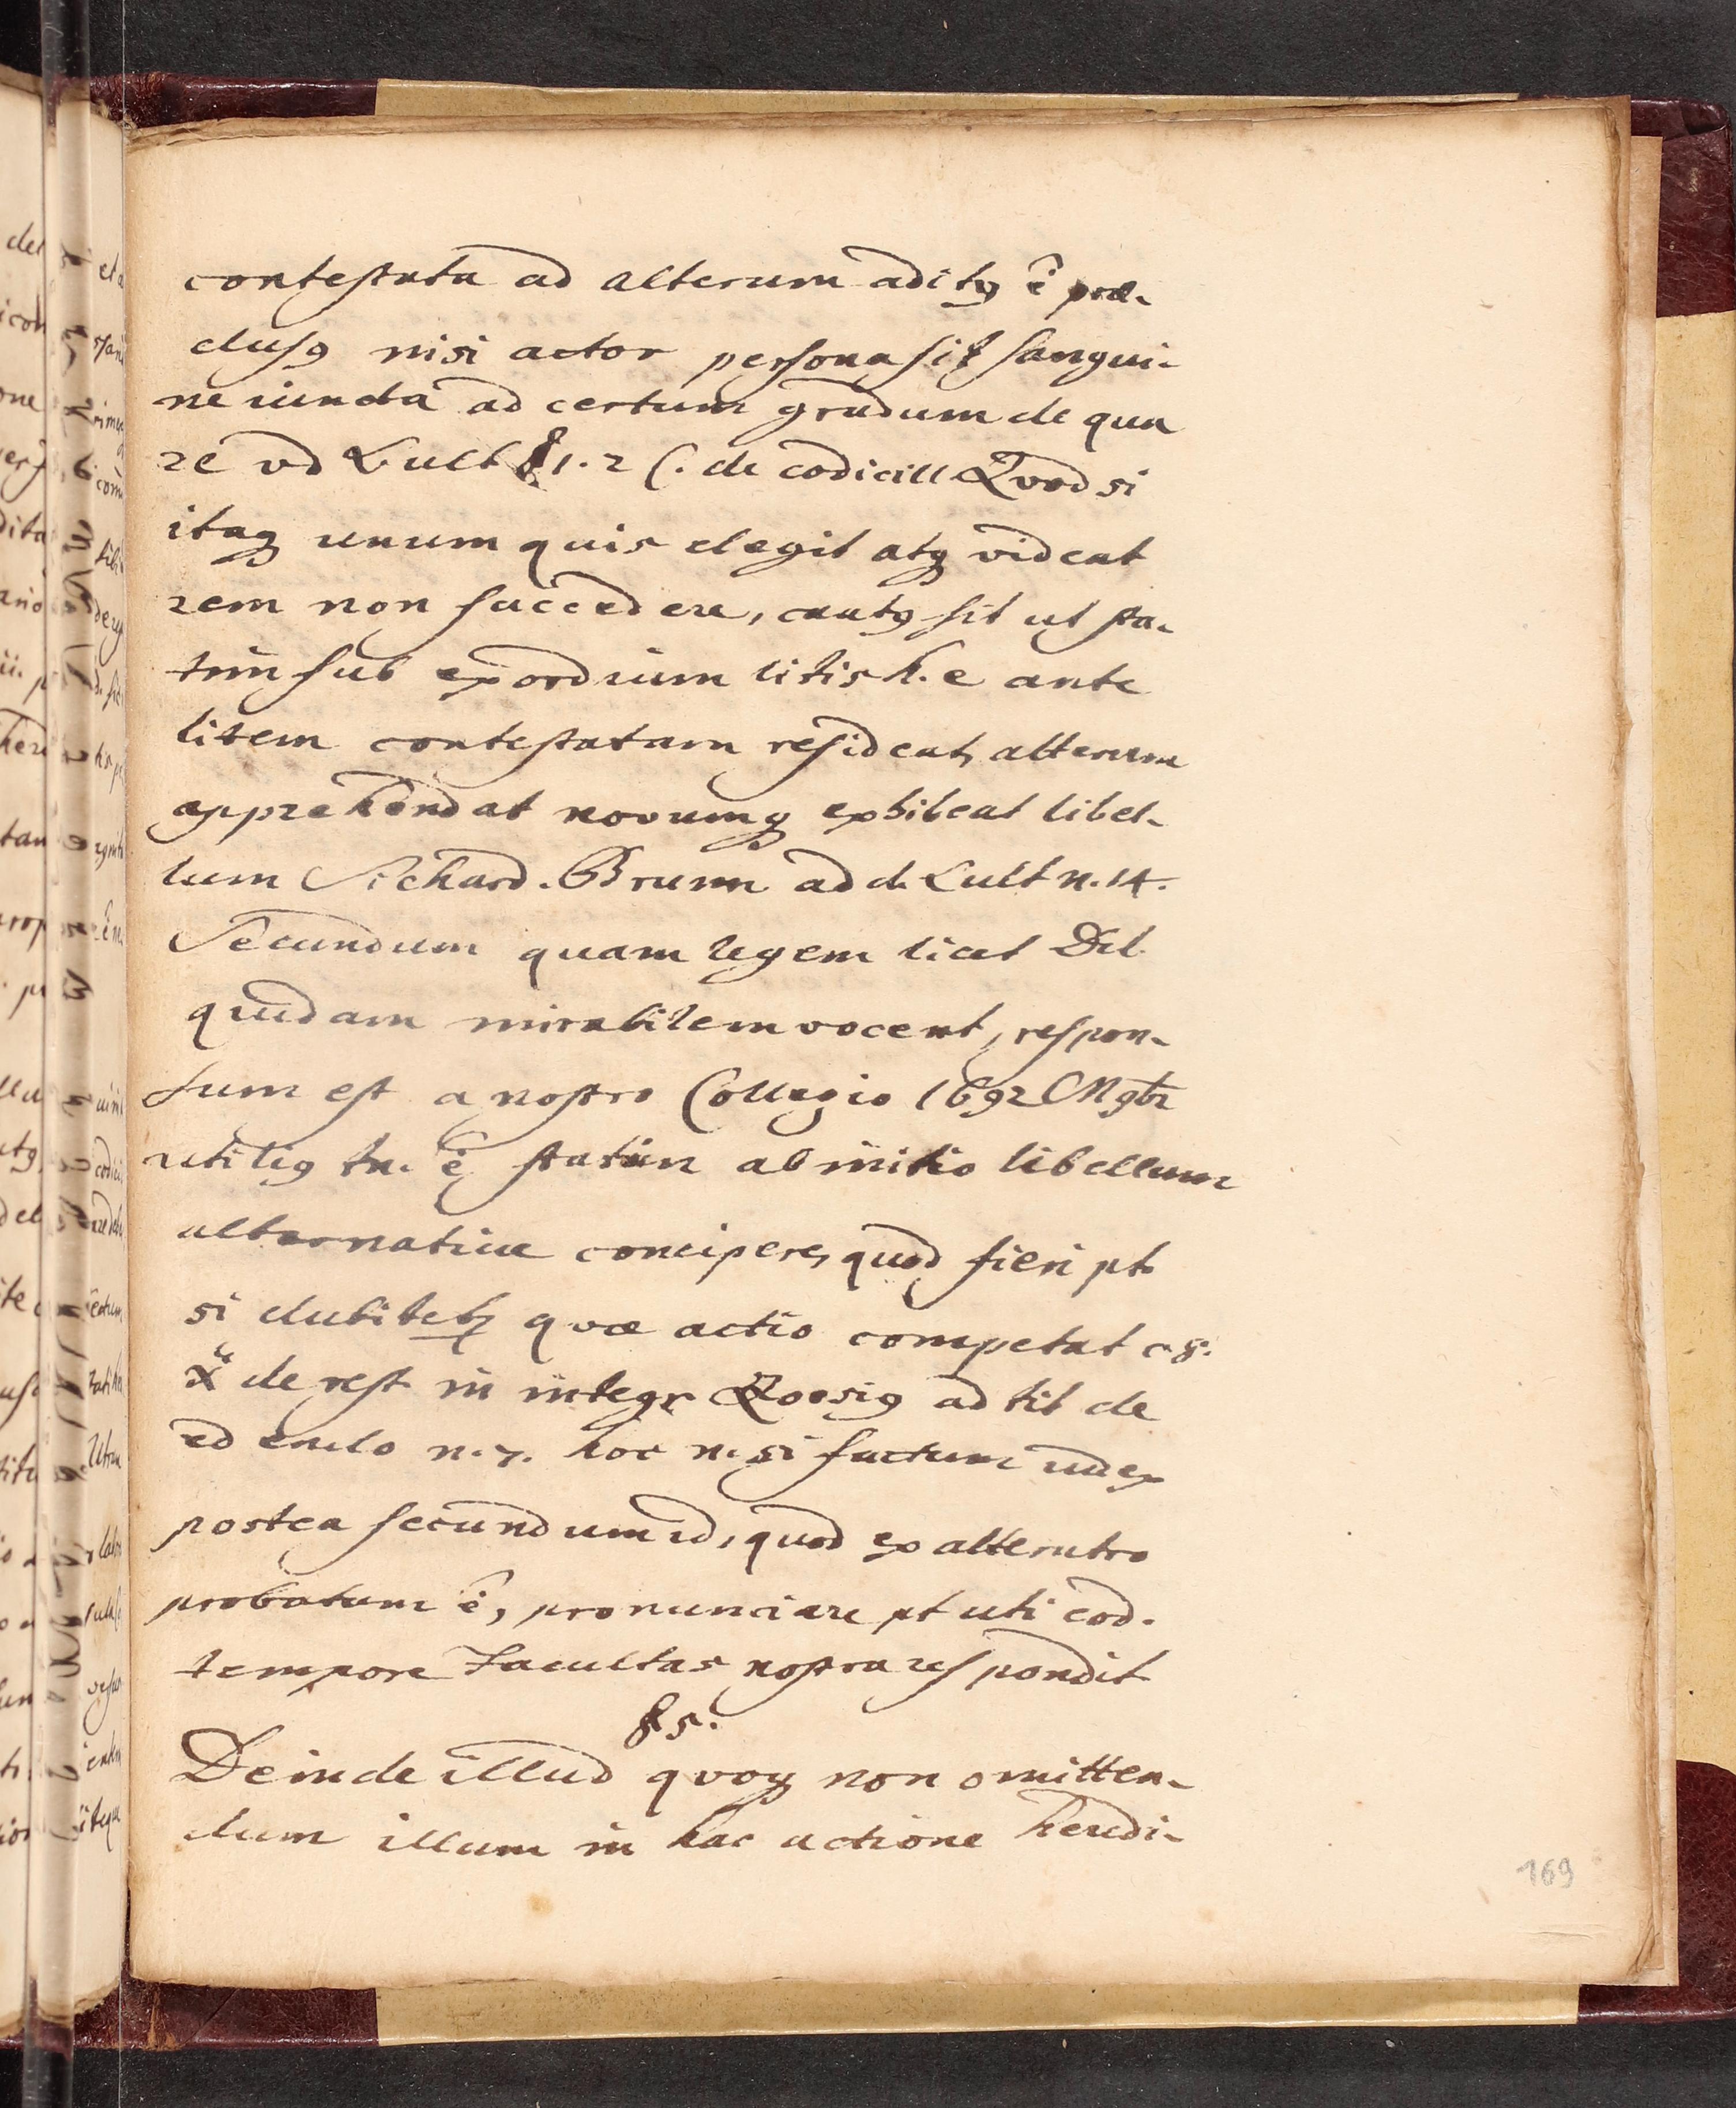 contestata ad alterum adit9 ê præ-
clus9 nisi actor persona sit sangui-
ne iuncta ad certum gradum de qua
re vd L ult § 1. 2 C. de codicill Quod si
itaq unum quis elegit atq videat
rem non succedere, caut9 sit ut sta-
tim sub exordium litis h. e ante
litem contestatam resideat, alterum
apprehendat novumq exhibeat libel-
lum Sichard. Brunn ad d. L ult n. 14.
Secundum quam legem licet Dd.
quidam mirabilem vocent, respon-
sum est a nostro Collegio 1692 M 9br
utili9 tn. ê statim ab initio libellum
alternative concipere, quod fieri pt
si dubitetq quæ actio competat c. 8.
X de rest in integr ad tit de
edendo n. 7. hoc n. si factum iudex
postea secundum id, quod ex alterutro
probatum ê, pronunciare pt uti eod.
tempore Facultas nostra respondit
§ 5.
Deinde illud quoq non omitten-
dum illum in hac actione heredi-
169